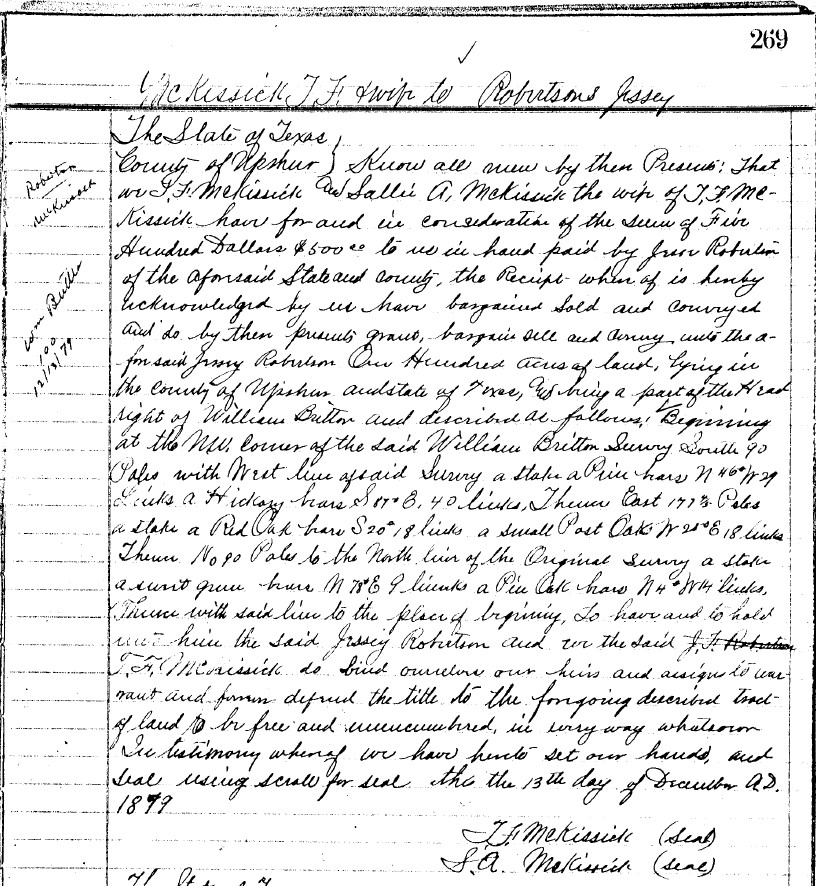 269
McKissick, T. F. & wife to Robertson Jessey
The State of Texas
County of Upshur } Know all men by these Presents: That
Robertson
McKissick
we T. F. McKissick and Sallie A. McKissick the wife of T. F. Mc-
Kissick have for and in consideration of the sum of Five
Hundred Dollars $500 00 to us in hand paid by Jesse Robertson
of the aforesaid State and County, the Receipt where of is hereby
acknowledged by us have bargained Sold and conveyed
Wm Britton
100
12/13/79
and do by these presents grant, bargain sell and convey unto the a-
foresaid Jessey Robertson One Hundred acres of land, lying in
the County of Upshur, and state of Texas, and being a part of the Head
right of William Britton and described as follows: Begining
at the NW. Corner of the said William Britton Survey South 90
Poles with West line of said Survey a stake a Pine bears N 46° W 29
Links a Hickory bears S 87° E. 40 links, Thence East 177 7/9 Poles
a stake a Red Oak bears S 20° 18 links a small Post Oak W 28° E 18 links
Thence No 90 Poles to the North line of the Original Survey a stake
a sweet gum bears N 78° E 9 liinks a Pin Oak bears N 4° W 14 links,
Thence with said line to the place of begining, To have and to hold
unto him the said Jessey Robertson and we the said J. F. Robertson
T. F. McKissick do bind ourselves our heirs and assigns to war-
rant and forever defend the title to the foregoing described tract
of land to be free and unencumbered, in every way whatsoever
In testimony whereof we have hereto set our hands, and
Seal using scroll for seal this the 13th day of December A.D.
1879
T. F. McKissick (seal)
S. A. McKissick (seal)